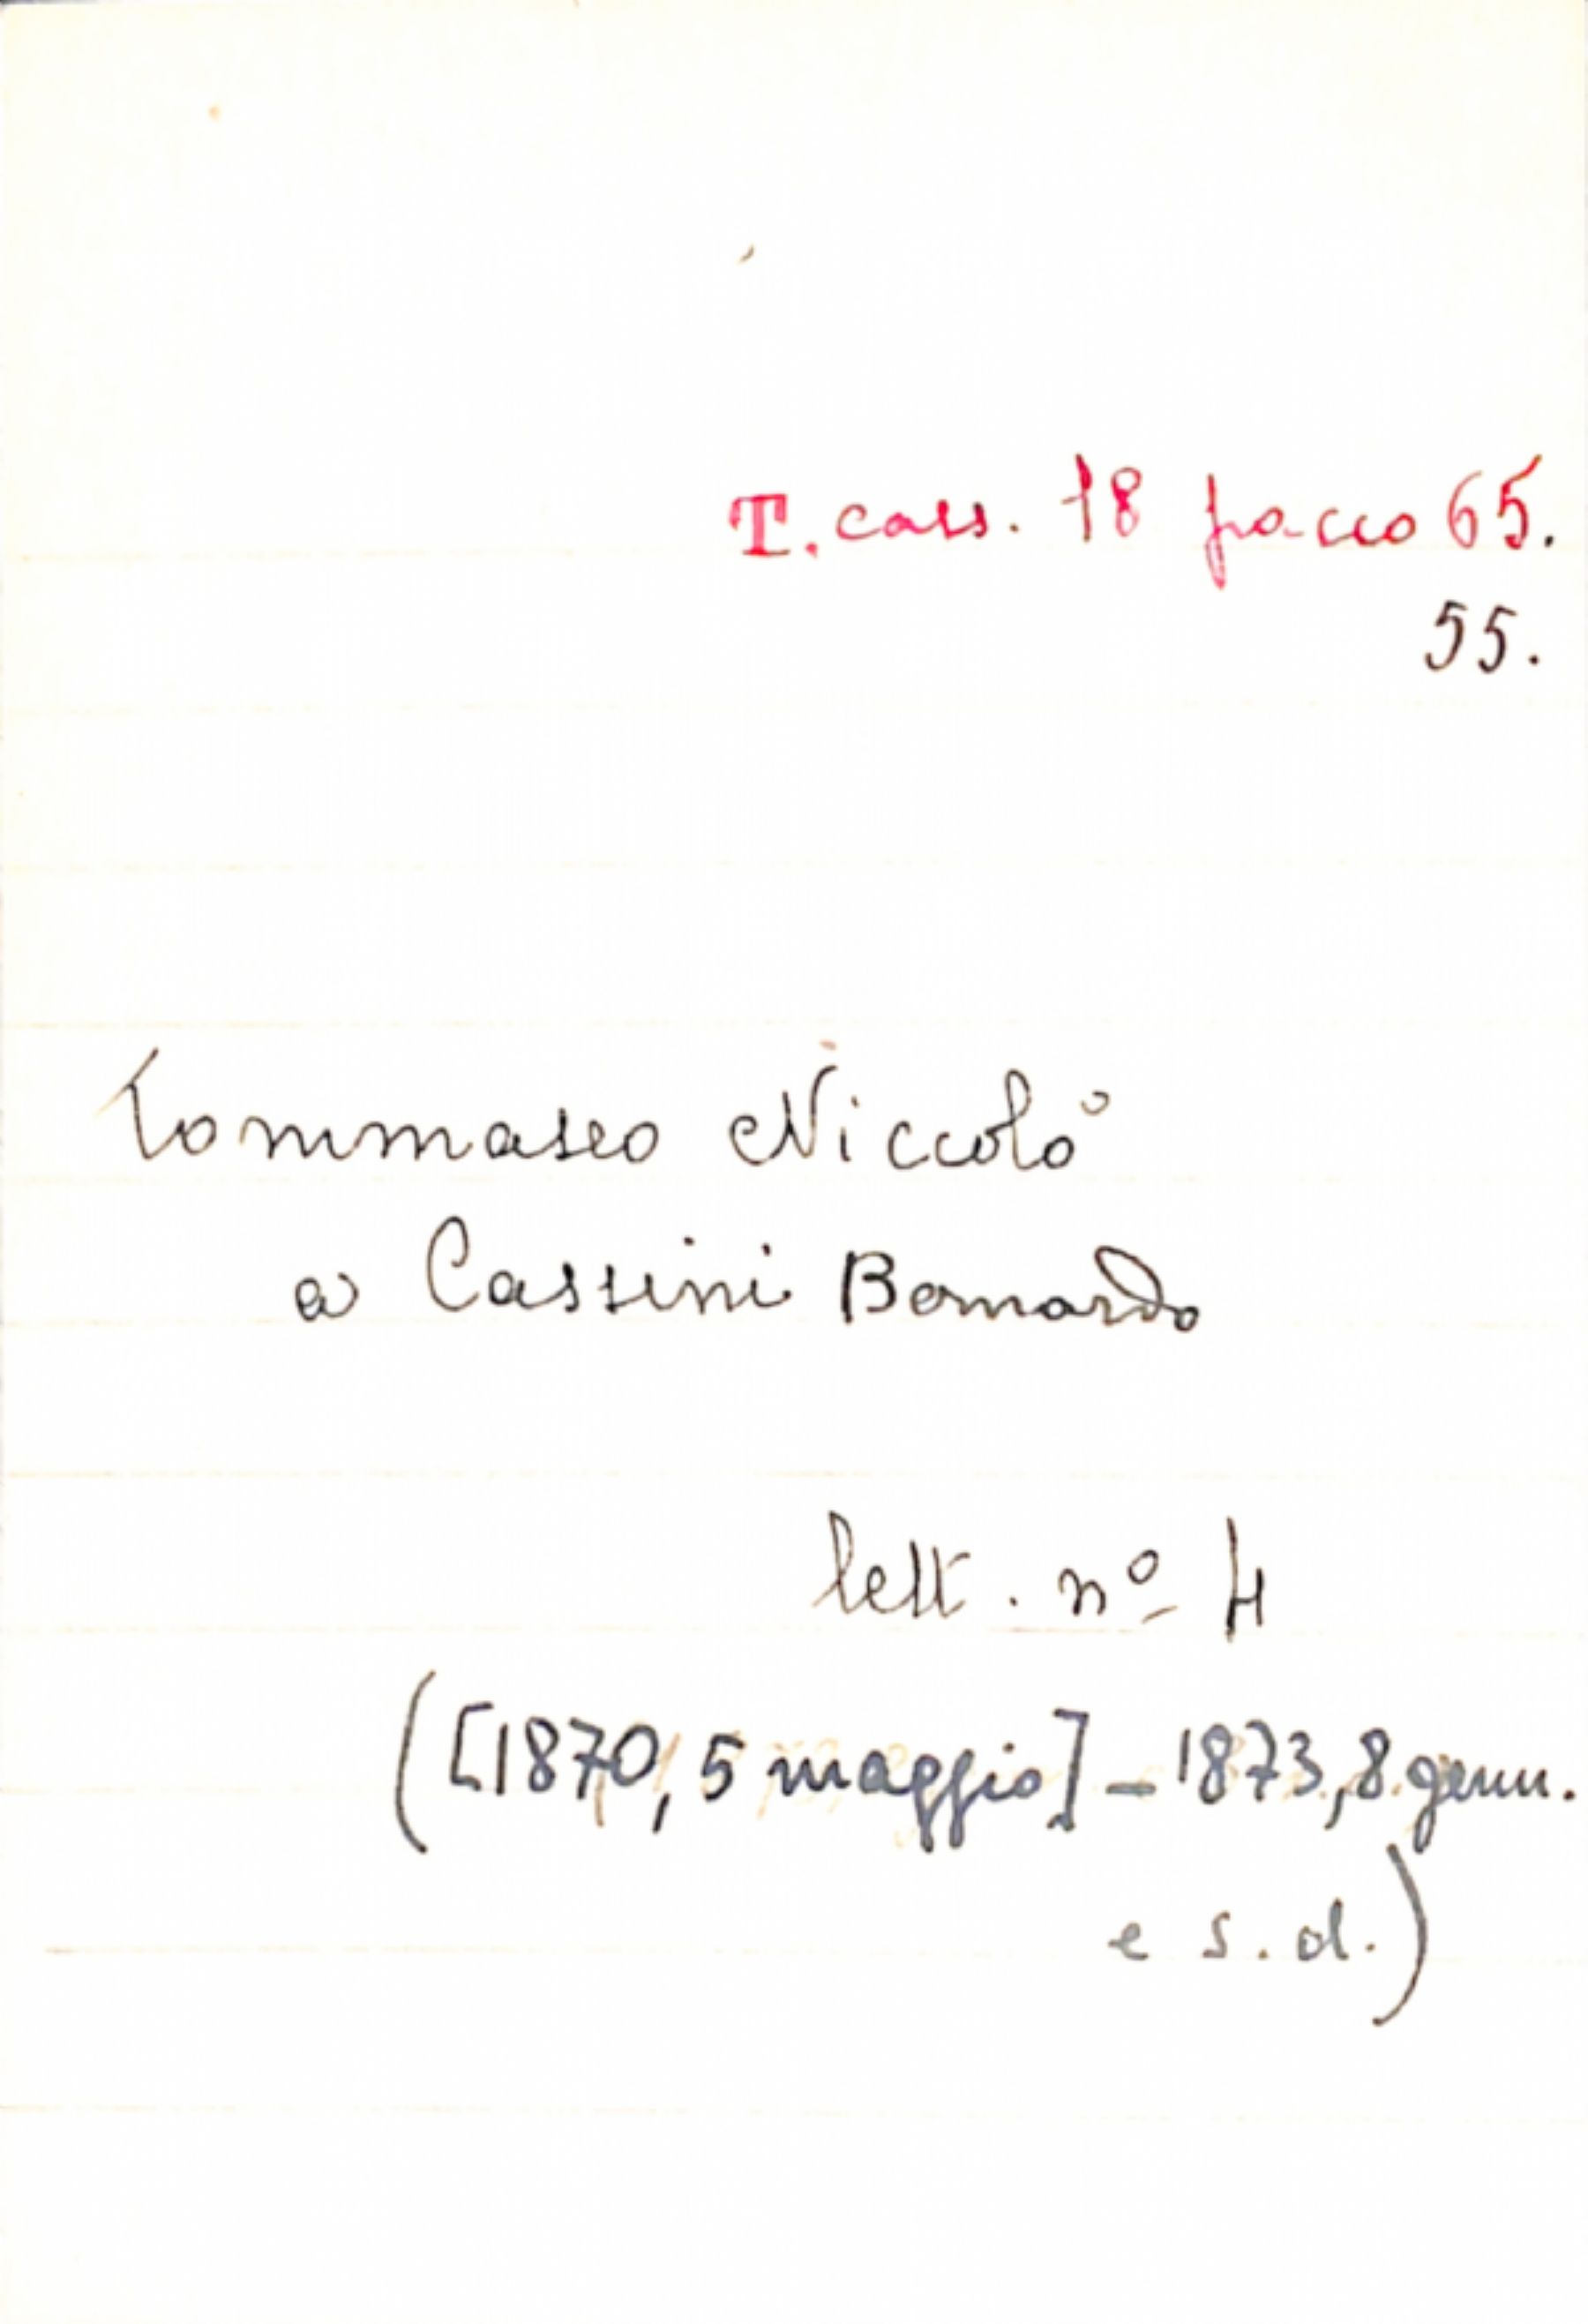 T. cass. 18 pacco 65.
55.
Tommaseo Niccolò
a Cassini Bernardo
lett. nº 4
([1870, 5 maggio] - 1873, 8 genn.
e s.d.)